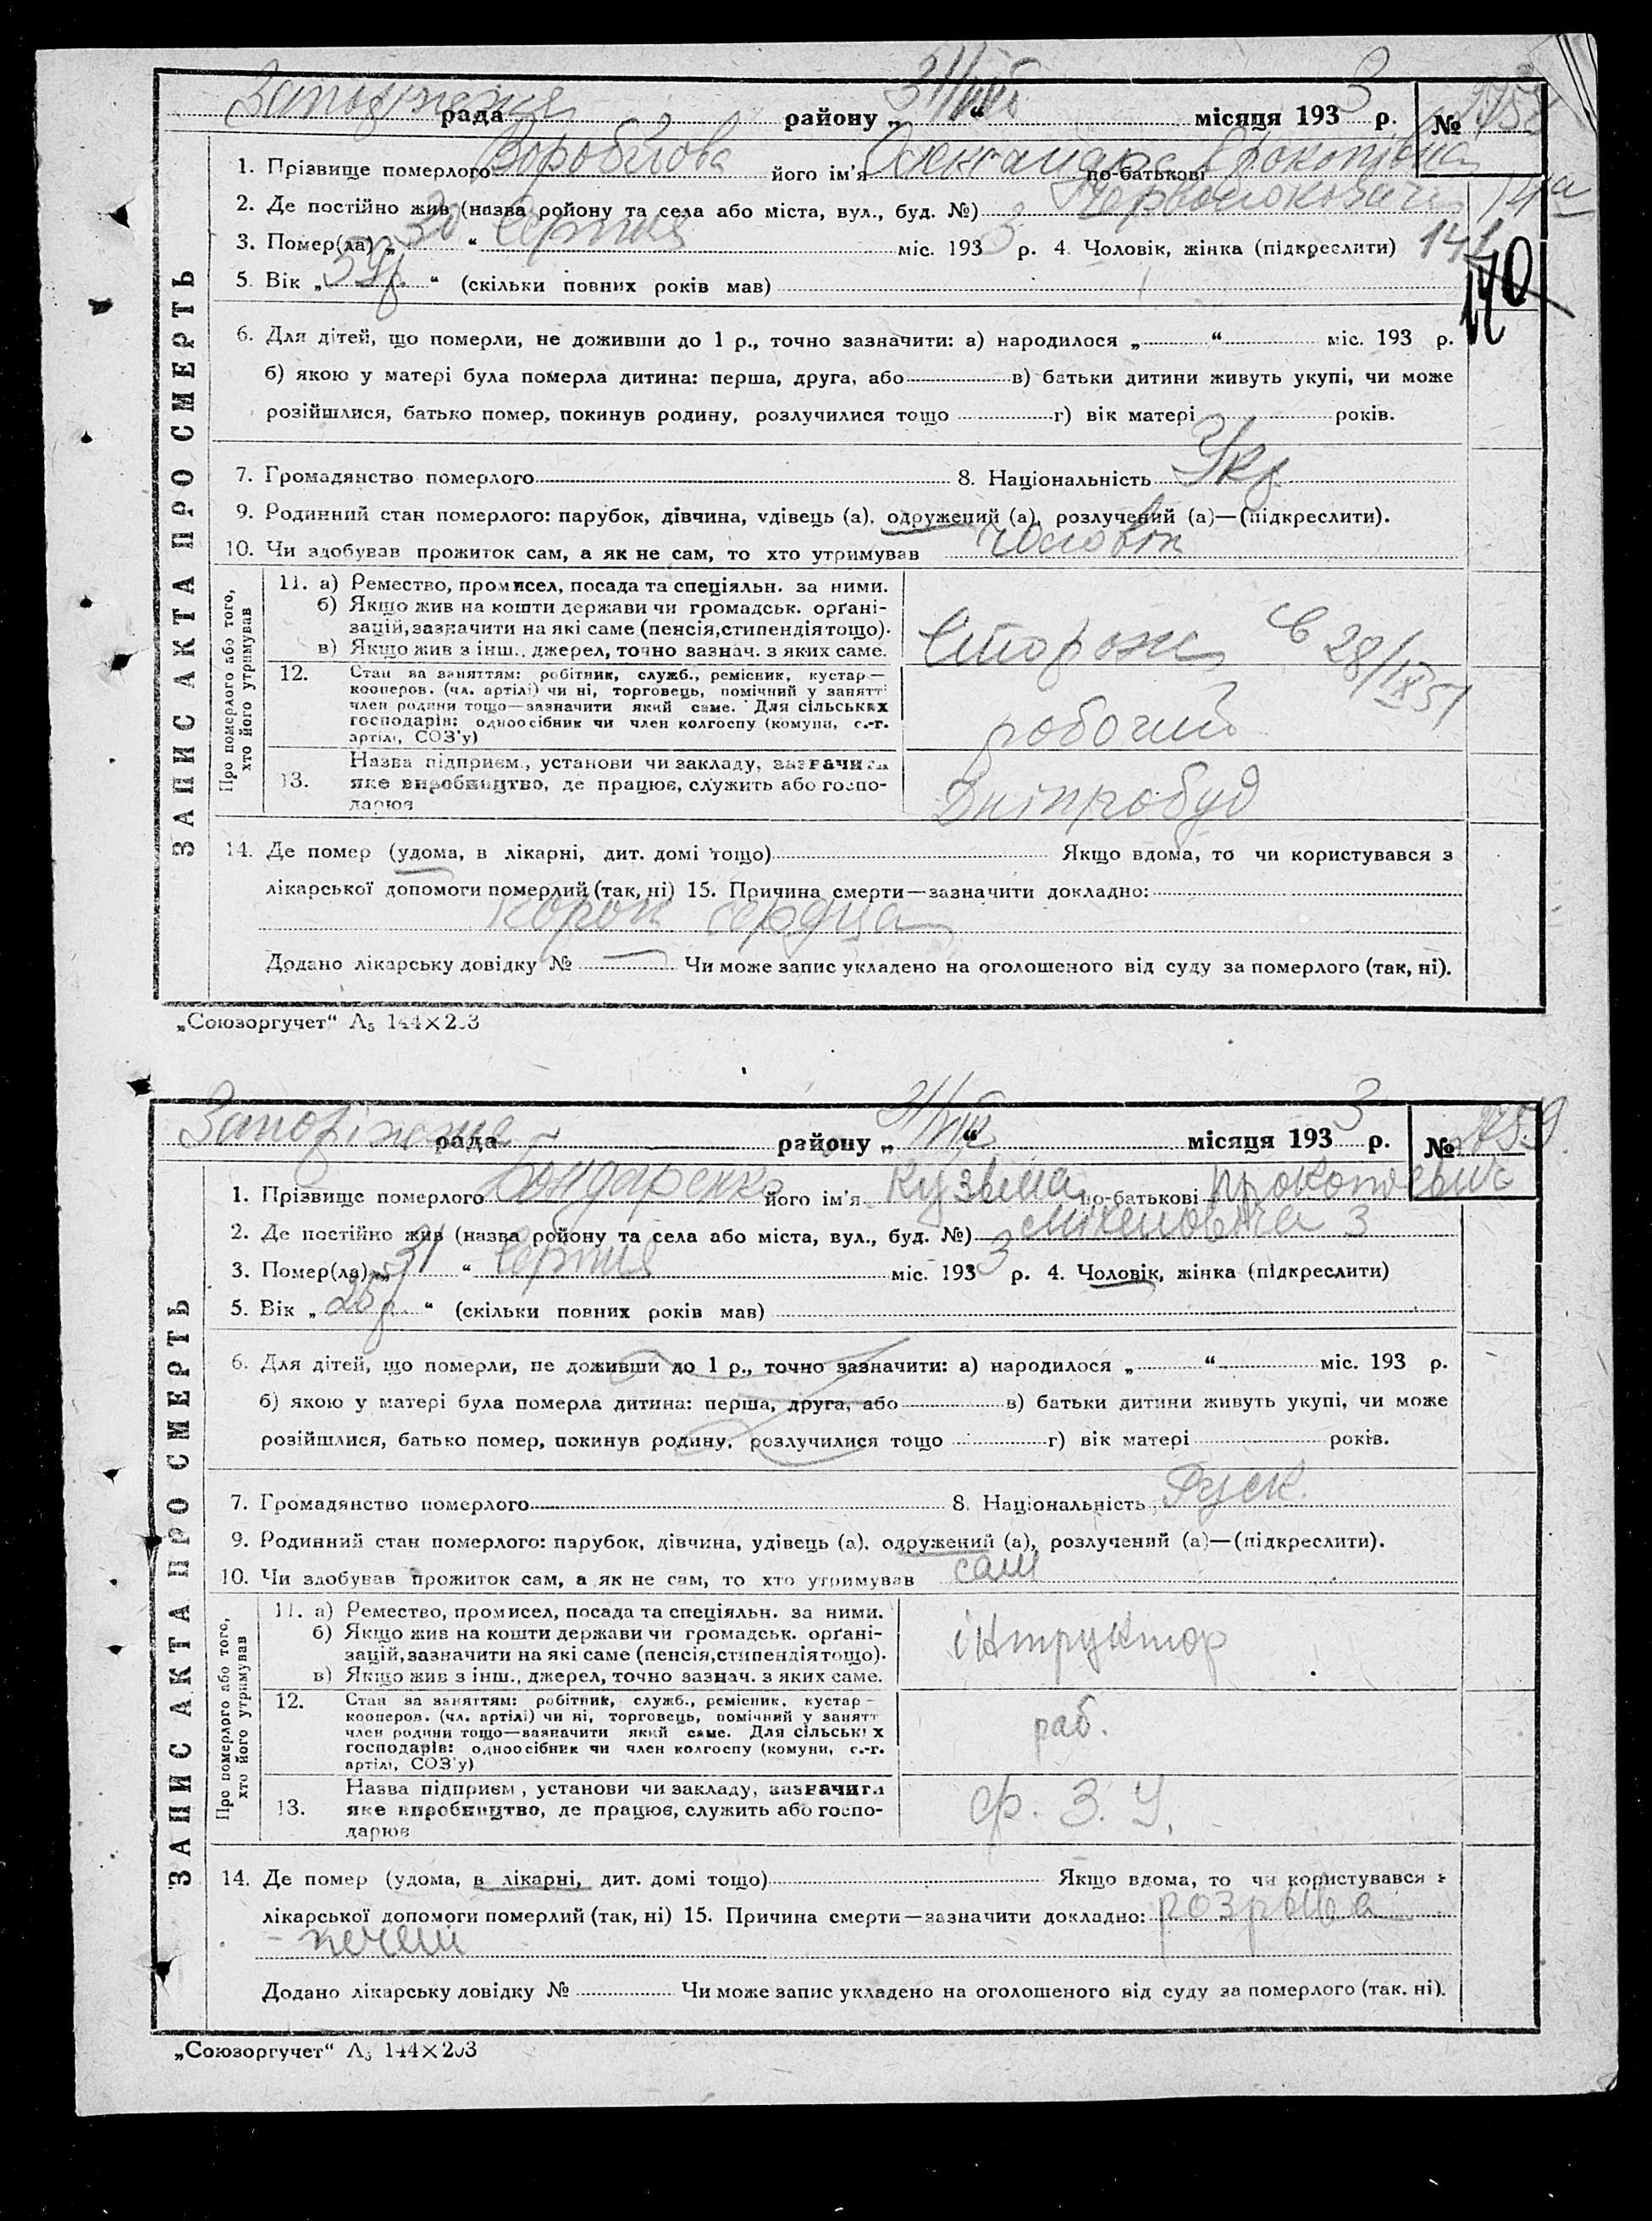 Запоріжжя рада району „31/VIII“ місяця 1933 р. № 2758
1. Прізвище померлого Воробйова його ім'я Олександра по-батькові Прокопівна
2. Де постійно жив (назва ройону та села або міста, вул., буд. №) 14а
3. Помер(ла) „30“ Серпня міс. 1933 р. 4. Чоловік, жінка (підкреслити) 141
140
5. Вік „59р.“ (скільки повних років мав)
6. Для дітей, що померли, не доживши до 1 р., точно зазначити: а) народилося „ “ міс. 193 р.
б) якою у матері була померла дитина: перша, друга, або в) батьки дитини живуть укупі, чи може
розійшлися, батько помер, покинув родину, розлучилися тощо г) вік матері років.
7. Громадянство померлого 8. Національність Укр
9. Родинний стан померлого: парубок, дівчина, удівець (а), одружений (а), розлучений (а)—(підкреслити).
10. Чи здобував прожиток сам, а як не сам, то хто утримував Чоловік
ЗАПИС АКТА ПРО СМЕРТЬ
Про померлого або того, хто його утримував
11. а) Ремество, промисел, посада та спеціяльн. за ними.
б) Якщо жив на кошти держави чи громадськ. орґані-
зацій, зазначити на які саме (пенсія, стипендія тощо).
в) Якщо жив з інш., джерел, точно зазнач. з яких саме.
Сторож С 28/IX 51
12. Стан за заняттям: робітник, служб., ремісник, кустар—
кооперов. (чл. артілі) чи ні, торговець, помічний у занятті
член родини тощо—зазначити який саме. Для сільських
господарів: одноосібник чи член колгоспу (комуни, с.-г.
артілі, СОЗ'у)
робочий
13. Назва підприєм., установи чи закладу, зазначити
яке виробництво, де працює, служить або госпо-
дарює
Дніпробуд
14. Де помер (удома, в лікарні, дит. домі тощо) Якщо вдома, то чи користувався з
лікарської допомоги померлий (так, ні) 15. Причина смерти—зазначити докладно:
порок сердца
Додано лікарську довідку № — Чи може запис укладено на оголошеного від суду за померлого (так, ні).
„Союзоргучет“ А₅ 144×203
Запоріжжя рада району „31/VIII“ місяця 1933 р. № 2759
1. Прізвище померлого Бондаренко його ім'я Кузьма по-батькові Прокопоевич
2. Де постійно жив (назва ройону та села або міста, вул., буд. №) 3
3. Помер(ла) „31“ Серпня міс. 1933 р. 4. Чоловік, жінка (підкреслити)
5. Вік „25р.“ (скільки повних років мав)
6. Для дітей, що померли, не доживши до 1 р., точно зазначити: а) народилося „ “ міс. 193 р.
б) якою у матері була померла дитина: перша, друга, або в) батьки дитини живуть укупі, чи може
розійшлися, батько помер, покинув родину, розлучилися тощо г) вік матері років.
7. Громадянство померлого 8. Національність Руск.
9. Родинний стан померлого: парубок, дівчина, удівець (а), одружений (а), розлучений (а)—(підкреслити).
10. Чи здобував прожиток сам, а як не сам, то хто утримував сам
ЗАПИС АКТА ПРО СМЕРТЬ
Про померлого або того, хто його утримував
11. а) Ремество, промисел, посада та спеціяльн. за ними.
б) Якщо жив на кошти держави чи громадськ. орґані-
зацій, зазначити на які саме (пенсія, стипендія тощо).
в) Якщо жив з інш., джерел, точно зазнач. з яких саме.
інтруктор
12. Стан за заняттям: робітник, служб., ремісник, кустар—
кооперов. (чл. артілі) чи ні, торговець, помічний у занятт
член родини тощо—зазначити який саме. Для сільських
господарів: одноосібник чи член колгоспу (комуни, с.-г.
артілі, СОЗ'у)
раб.
13. Назва підприєм., установи чи закладу, зазначити
яке виробництво, де працює, служить або госпо-
дарює
ф. З. У.
14. Де помер (удома, в лікарні, дит. домі тощо) Якщо вдома, то чи користувався з
лікарської допомоги померлий (так, ні) 15. Причина смерти—зазначити докладно:
печени
Додано лікарську довідку № Чи може запис укладено на оголошеного від суду за померлого (так, ні).
„Союзоргучет“ А₅ 144×203